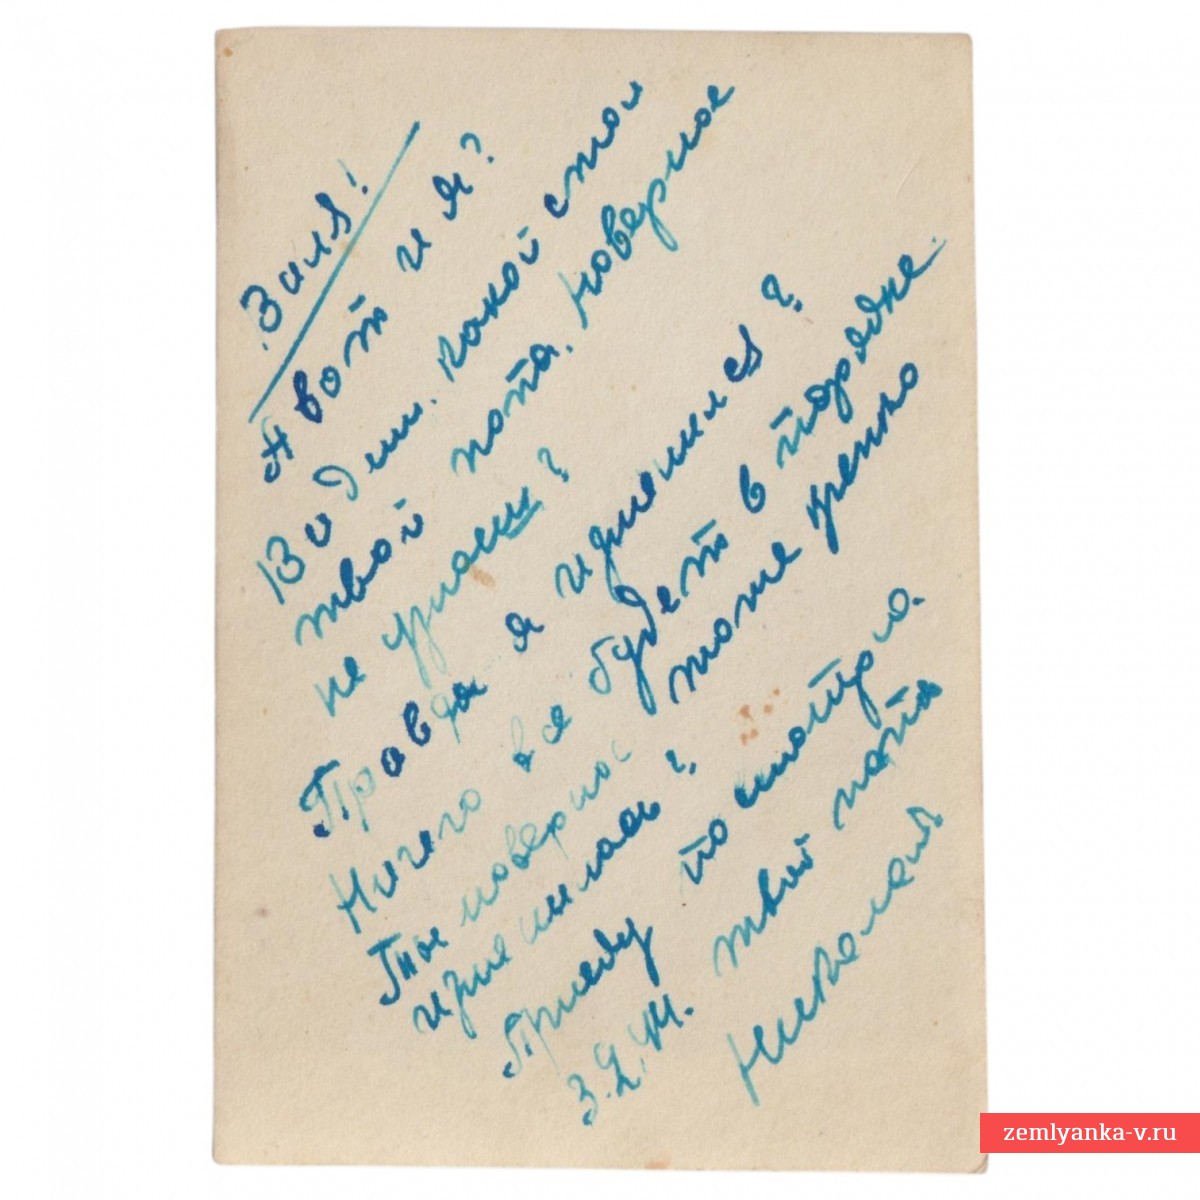 Зиля!
А вот и я?
Видиш. какой стал
твой папа. Наверное
не узнаеш?
Правда я изменился?
Ничего все будет в порядке.
Ты наверное тоже крепко
изменилась?
Приеду посмотрю.
3.2.44. твой папа
Николай.
zemlyanka-v.ru